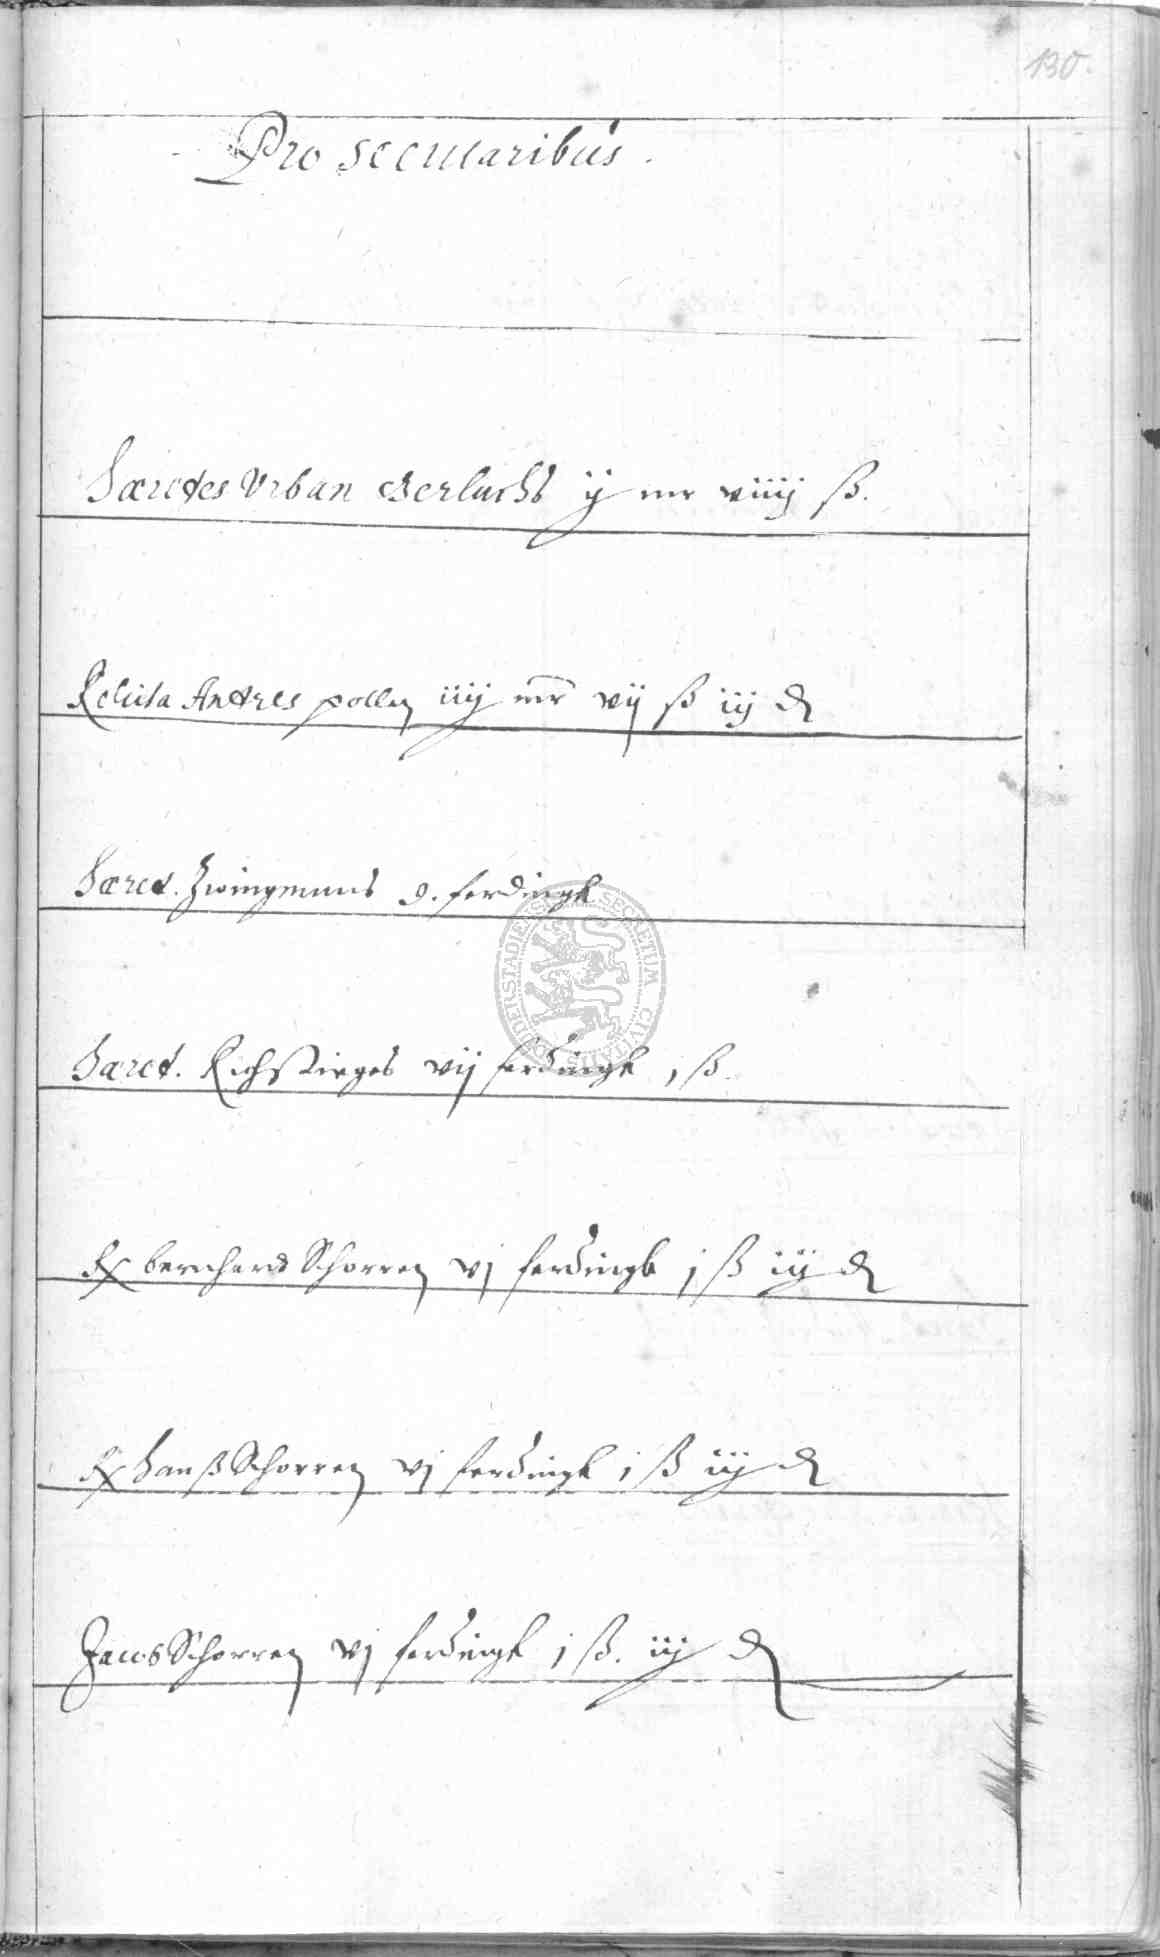 130.
Pro secularibus.
Hæredes Urban Gerlachs ij mr viiij ß.
Relicta Andres pollen iiij mr vij ß iij ₰
Hæred. Zwingmans 9. ferdingk
Hæred. Richstieges vij ferdingk j ß.
Rx bernhard Schorren vj ferdingk j ß iij ₰
Rx Hanß Schorren vj ferdingk j ß iij ₰
Jacob Schorren vj ferdingk j ß. iij ₰
SECRETUM CIVITATIS DUDERSTADIENSIS